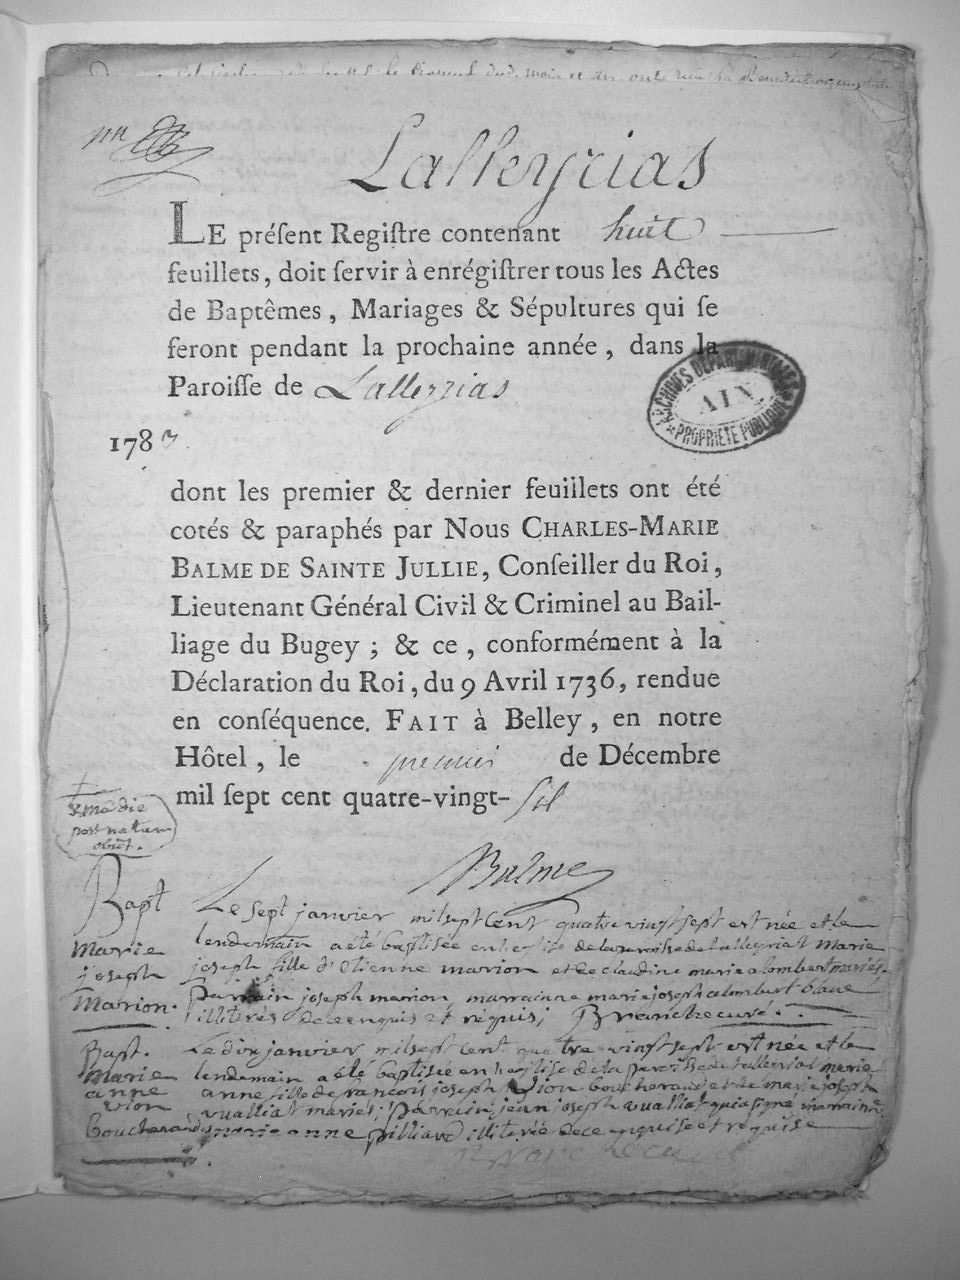 Lalleyrias
LE préſent Regiſtre contenant huit
feuillets, doit ſervir à enrégiſtrer tous les Actes
de Baptêmes, Mariages & Sépultures qui ſe
feront pendant la prochaine année, dans la
Paroiſſe de Lalleyrias
ARCHIVES DÉPARTEMENTALES
AIN
PROPRIÉTÉ PUBLIQUE
1787
dont les premier & dernier feuillets ont été
cotés & paraphés par Nous CHARLES-MARIE
BALME DE SAINTE JULLIE, Conſeiller du Roi,
Lieutenant Général Civil & Criminel au Bail-
liage du Bugey ; & ce, conformément à la
Déclaration du Roi, du 9 Avril 1736, rendue
en conſéquence. FAIT à Belley, en notre
Hôtel, le premier de Décembre
mil ſept cent quatre-vingt-
die
post natum
obiit.
Balme
Bapt
marie
joseph
marion.
Le sept janvier mil sept cent quatre vingt sept est née et le
lendemain a été baptisée en l'eglise de la paroisse de Lalleyriat marie
joseph fille d'Etienne marion et de claudine marie alombert mariés.
parrain joseph marion, marrainne marie joseph alombert
illiterés de ce enquis et requis;
Bapt.
marie
anne
vion
boucherand
Le dix janvier mil sept cent quatre vingt sept est née et le
lendemain a été baptisée en l'eglise de la paroisse de Lalleyriat marie
anne fille de francois joseph vion boucherand et de marie joseph
vualliat mariés: parrain jean joseph vualliat qui a signé marrainne
marie anne pilliard illiterée de ce enquise et requise